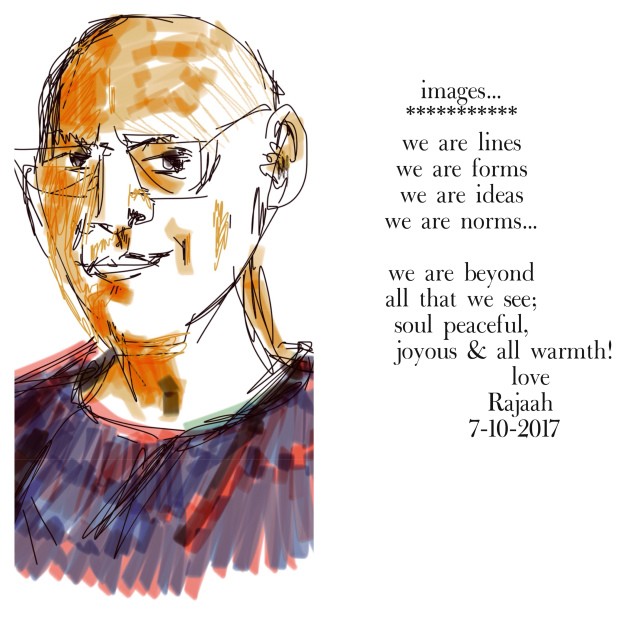 images...
***********
we are lines
we are forms
we are ideas
we are norms...
we are beyond
all that we see;
soul peaceful,
joyous & all warmth!
love
Rajaah
7-10-2017